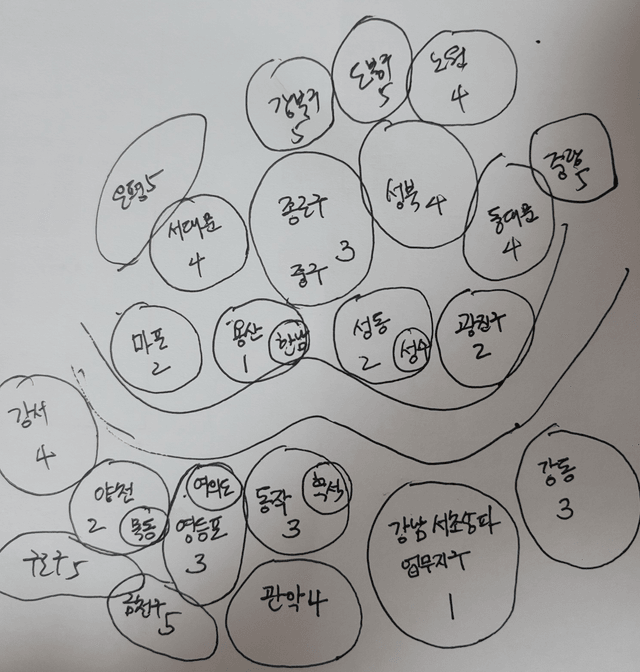 도봉구
5
노원
4
강북구
5
중랑
5
은평 5
성북 4
종로구
3
중구
서대문
4
동대문
4
마포
2
용산
1
한남
성동
2
성수
광진구
2
강서
4
양천
2
목동
여의도
영등포
3
동작
3
흑석
강동
3
강남 서초 송파
업무지구
1
구로구 5
금천구
5
관악 4